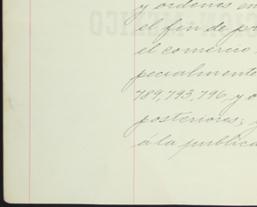 y ordenes en
el fin de pr
el comercio
pecialmente
789, 793, 796 y o
posteriores;
á la publica